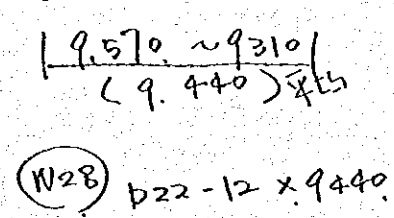 9.570 ~ 9310
(9.440) 平均
W28 D22-12 × 9440